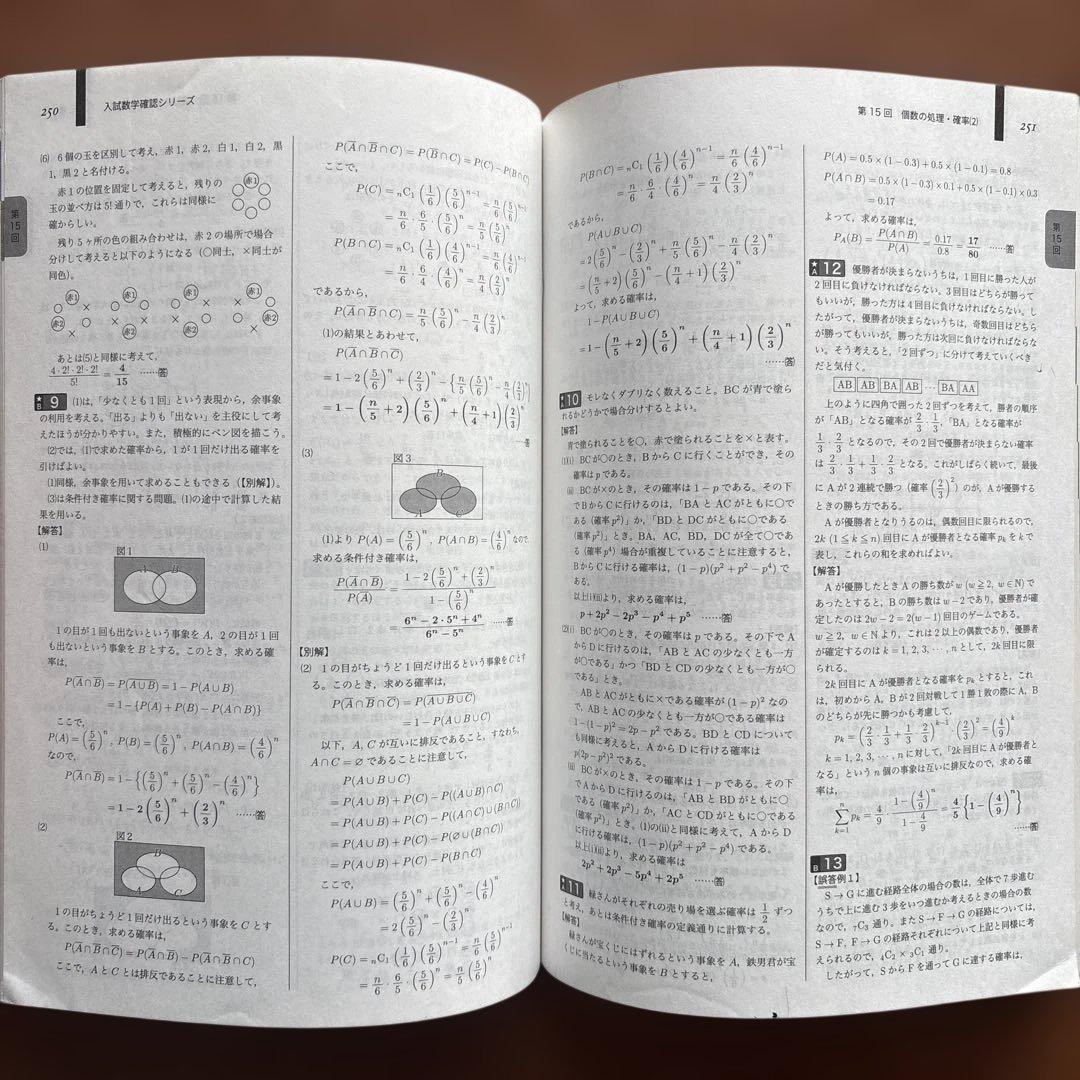 250
入試数学確認シリーズ
(6) 6個の玉を区別して考え，赤1，赤2，白1，白2，黒
1，黒2と名付ける。
赤1の位置を固定して考えると，残りの
玉の並べ方は5!通りで，これらは同様に
確からしい。
赤1
残り5ヶ所の色の組み合わせは，赤2の場所で場合
分けして考えると以下のようになる（○同士，×同士が
同色）。
赤1 赤1 赤1 赤1
赤2 赤2 赤2 赤2
あとは(5)と同様に考えて，
4・2!・2!・2!/5! = 4/15 ……答
第15回
★B 9 (1)は，「少なくとも1回」という表現から，余事象
の利用を考える。「出る」よりも「出ない」を主役にして考
えたほうが分かりやすい。また，積極的にベン図を描こう。
(2)では，(1)で求めた確率から，1が1回だけ出る確率を
引けばよい。
(1)同様，余事象を用いて求めることもできる（【別解】）。
(3)は条件付き確率に関する問題。(1)の途中で計算した結
果を用いる。
【解答】
(1)
図1
A B
1の目が1回も出ないという事象をA，2の目が1回
も出ないという事象をBとする。このとき，求める確
率は，
P(A̅∩B̅)=P(A̅∪̅B̅)=1−P(A∪B)
=1−{P(A)+P(B)−P(A∩B)}
ここで，
P(A)=(5/6)^n，P(B)=(5/6)^n，P(A∩B)=(4/6)^n
なので，
P(A̅∩B̅)=1−{(5/6)^n+(5/6)^n−(4/6)^n}
=1−2(5/6)^n+(2/3)^n ……答
(2)
図2
B
A C
1の目がちょうど1回だけ出るという事象をCとす
る。このとき，求める確率は，
P(A̅∩B̅∩C̅)=P(A̅∩B̅)−P(A̅∩B̅∩C)
ここで，AとCとは排反であることに注意して，
P(A̅∩B̅∩C)=P(B̅∩C)=P(C)−P(B∩C)
ここで，
P(C)=nC1(1/6)(5/6)^{n−1}=n/6(5/6)^{n−1}
=n/6・6/5(5/6)^n=n/5(5/6)^n
P(B∩C)=nC1(1/6)(4/6)^{n−1}=n/6(4/6)^{n−1}
=n/6・6/4(4/6)^n=n/4(2/3)^n
であるから，
P(A̅∩B̅∩C)=n/5(5/6)^n−n/4(2/3)^n
(1)の結果とあわせて，
P(A̅∩B̅∩C̅)
=1−2(5/6)^n+(2/3)^n−{n/5(5/6)^n−n/4(2/3)^n}
=1−(n/5+2)(5/6)^n+(n/4+1)(2/3)^n
……答
(3)
図3
B
A C
(1)よりP(A)=(5/6)^n，P(A∩B)=(4/6)^nなので，
求める条件付き確率は，
P(A̅∩B̅)/P(A̅)=(1−2(5/6)^n+(2/3)^n)/(1−(5/6)^n)
=(6^n−2・5^n+4^n)/(6^n−5^n) ……答
【別解】
(2) 1の目がちょうど1回だけ出るという事象をCとす
る。このとき，求める確率は，
P(A̅∩B̅∩C̅)=P(A̅∪̅B̅∪̅C̅)
=1−P(A∪B∪C)
以下，A，Cが互いに排反であること，すなわち，
A∩C=∅であることに注意して，
P(A∪B∪C)
=P(A∪B)+P(C)−P((A∪B)∩C)
=P(A∪B)+P(C)−P((A∩C)∪(B∩C))
=P(A∪B)+P(C)−P(∅∪(B∩C))
=P(A∪B)+P(C)−P(B∩C)
ここで，
P(A∪B)=(5/6)^n+(5/6)^n−(4/6)^n
=2(5/6)^n−(2/3)^n
P(C)=nC1(1/6)(5/6)^{n−1}=n/6(5/6)^{n−1}
=n/6・6/5(5/6)^n=n/5(5/6)^n
第15回 個数の処理・確率(2)
251
P(B∩C)=nC1(1/6)(4/6)^{n−1}=n/6(4/6)^{n−1}
=n/6・6/4(4/6)^n=n/4(2/3)^n
であるから，
P(A∪B∪C)
=2(5/6)^n−(2/3)^n+n/5(5/6)^n−n/4(2/3)^n
=(n/5+2)(5/6)^n−(n/4+1)(2/3)^n
よって，求める確率は，
1−P(A∪B∪C)
=1−(n/5+2)(5/6)^n+(n/4+1)(2/3)^n
……答
10 モレなくダブリなく数えること。BCが青で塗ら
れるかどうかで場合分けするとよい。
【解答】
青で塗られることを○，赤で塗られることを×と表す。
(1)(i) BCが○のとき，BからCに行くことができ，その
確率はpである。
(ii) BCが×のとき，その確率は1−pである。その下
でBからCに行けるのは，「BAとACがともに○で
ある（確率p²）」か，「BDとDCがともに○である
（確率p²）」とき。BA，AC，BD，DCが全て○であ
る（確率p⁴）場合が重複していることに注意すると，
BからCに行ける確率は，(1−p)(p²+p²−p⁴)で
ある。
以上(i)(ii)より，求める確率は，
p+2p²−2p³−p⁴+p⁵ ……答
(2)(i) BCが○のとき，その確率はpである。その下でA
からDに行けるのは，「ABとACの少なくとも一方
が○である」かつ「BDとCDの少なくとも一方が○
である」とき。
ABとACがともに×である確率が(1−p)²なの
で，ABとACの少なくとも一方が○である確率は
1−(1−p)²=2p−p²である。BDとCDについて
も同様に考えると，AからDに行ける確率は
p(2p−p²)²である。
(ii) BCが×のとき，その確率は1−pである。その下
でAからDに行けるのは，「ABとBDがともに○
である（確率p²）」か，「ACとCDがともに○である
（確率p²）」とき。(1)の(ii)と同様に考えて，AからD
に行ける確率は，(1−p)(p²+p²−p⁴)である。
以上(i)(ii)より，求める確率は
2p²+2p³−5p⁴+2p⁵ ……答
11 緑さんがそれぞれの売り場を選ぶ確率は1/2ずつ
と考え，あとは条件付き確率の定義通りに計算する。
【解答】
緑さんが宝くじにはずれるという事象をA，鉄男君が宝
くじに当たるという事象をBとすると，
P(A)=0.5×(1−0.3)+0.5×(1−0.1)=0.8
P(A∩B)=0.5×(1−0.3)×0.1+0.5×(1−0.1)×0.3
=0.17
よって，求める確率は，
P_A(B)=P(A∩B)/P(A)=0.17/0.8=17/80 ……答
第15回
★A 12 優勝者が決まらないうちは，1回目に勝った人が
2回目に負けなければならない。3回目はどちらが勝って
もいいが，勝った方は4回目に負けなければならない。し
たがって，優勝者が決まらないうちは，奇数回目はどちら
が勝ってもいいが，勝った方は次回に負けなければならな
い。そう考えると，「2回ずつ」に分けて考えていくべき
だと気付く。
AB BA BA AB … BA AA
上のように四角で囲った2回ずつを考えて，勝者の順序
が「AB」となる確率が2/3・1/3，「BA」となる確率が
1/3・2/3となるので，その2回で優勝者が決まらない確率
は2/3・1/3+1/3・2/3となる。これがしばらく続いて，最後
にAが2連続で勝つ（確率(2/3)²）のが，Aが優勝する
ときの勝ち方である。
Aが優勝者となりうるのは，偶数回目に限られるので，
2k(1≦k≦n)回目にAが優勝者となる確率p_kをkで
表し，これらの和を求めればよい。
【解答】
Aが優勝したときAの勝ち数がw(w≧2，w∈N)で
あったとすると，Bの勝ち数はw−2であり，優勝者が確
定したのは2w−2=2(w−1)回目のゲームである。
w≧2，w∈Nより，これは2以上の偶数であり，優勝者
が確定するのはk=1，2，3，…，nとして，2k回目に限
られる。
2k回目にAが優勝者となる確率をp_kとすると，これ
は，初めからA，Bが2回対戦して1勝1敗の際にA，B
のどちらが先に勝つかも考慮して，
p_k=(2/3・1/3+1/3・2/3)^{k−1}・(2/3)²=(4/9)^k
k=1，2，3，…，nに対して，「2k回目にAが優勝者と
なる」というn個の事象は互いに排反なので，求める確
率は，
∑_{k=1}^{n}p_k=4/9・(1−(4/9)^n)/(1−4/9)=4/5{1−(4/9)^n}
……答
B 13
【誤答例1】
S→Gに進む経路全体の場合の数は，全体で7歩進む
うちで上に進む3歩をいつ進むか考えるときの場合の数
なので，₇C₃通り。またS→F→Gの経路については，
S→F，F→Gの経路それぞれについて上記と同様に考
えられるので，₄C₂×₃C₁通り。
したがって，SからFを通ってGに達する確率は，